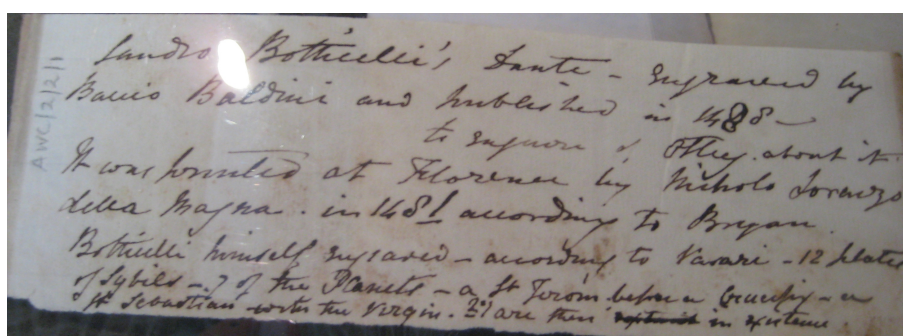 Sandro Botticelli's Dante - Engraved by
Baccio Baldini and published in 1488 -
to enquire of Ottley about it
It was printed at Florence by Nicholo Lorenzo
della Magna. in 1481 according to Bryan.
Botticelli himself engraved - according to Vasari - 12 plates
of Sybils - 7 of the Planets - a St Jerom before a Crucifix - a
St Sebastian with the Virgin. are then in existence
AWC/2/2/1